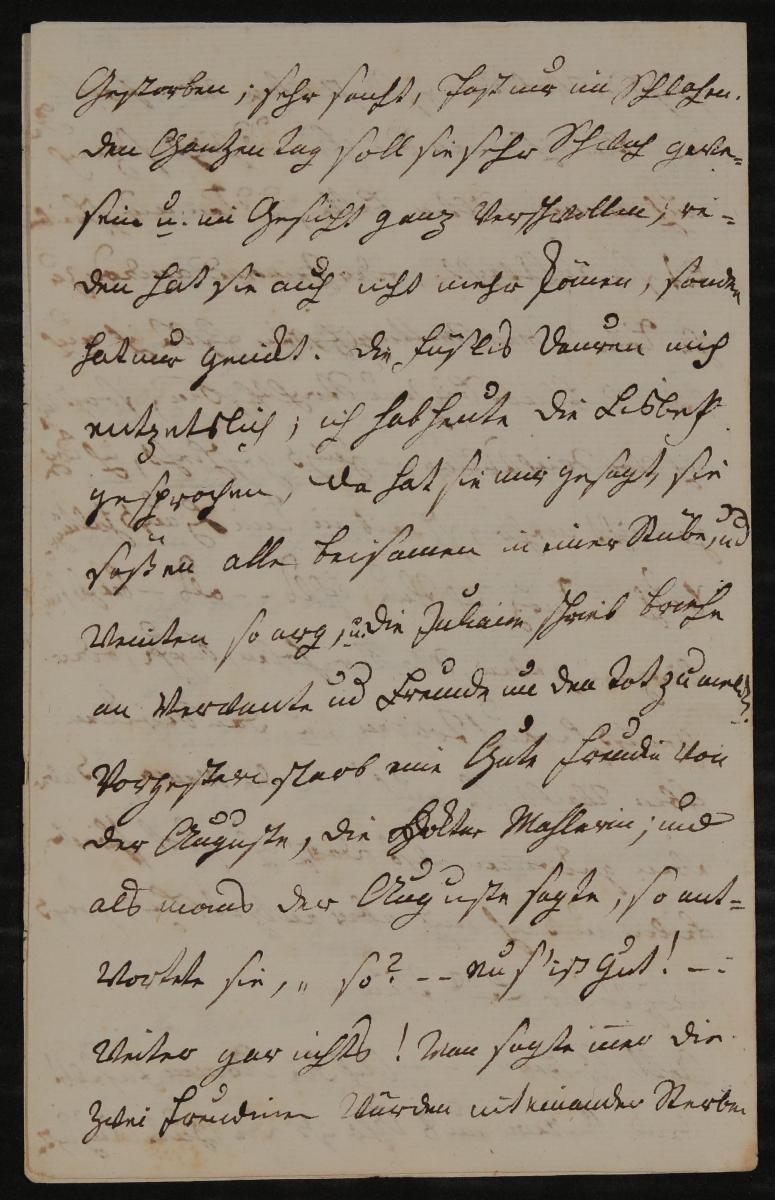 Gestorben; sehr sanft, fast nur im Schlafen.
den Ganzen Tag soll sie sehr Schwach gewe=
sein u. im Gesicht ganz Verschwollen; re=
den hat sie auch nicht mehr können, sondern
hat nur genickt. die Füsslis dauren mich
entzetslich; ich hab heute die Lisbeth
gesprochen, da hat sie mir gesagt, sie
sassen alle beisamen in einer Stube, und
Weinten so arg, u. die Juliane schrieb briefe
an Verwante und Freunde um den Tot zu melden.
Vorgestern starb eine Gute freundin von
der Auguste, die Dokter Mahlerin; und
als mans der Auguste sagte, so ant=
wortete sie, „ so? -- nu s'ist Gut! -:
Weiter gar nichts! Man sagte immer die
zwei freundinen Würden miteinander Sterben